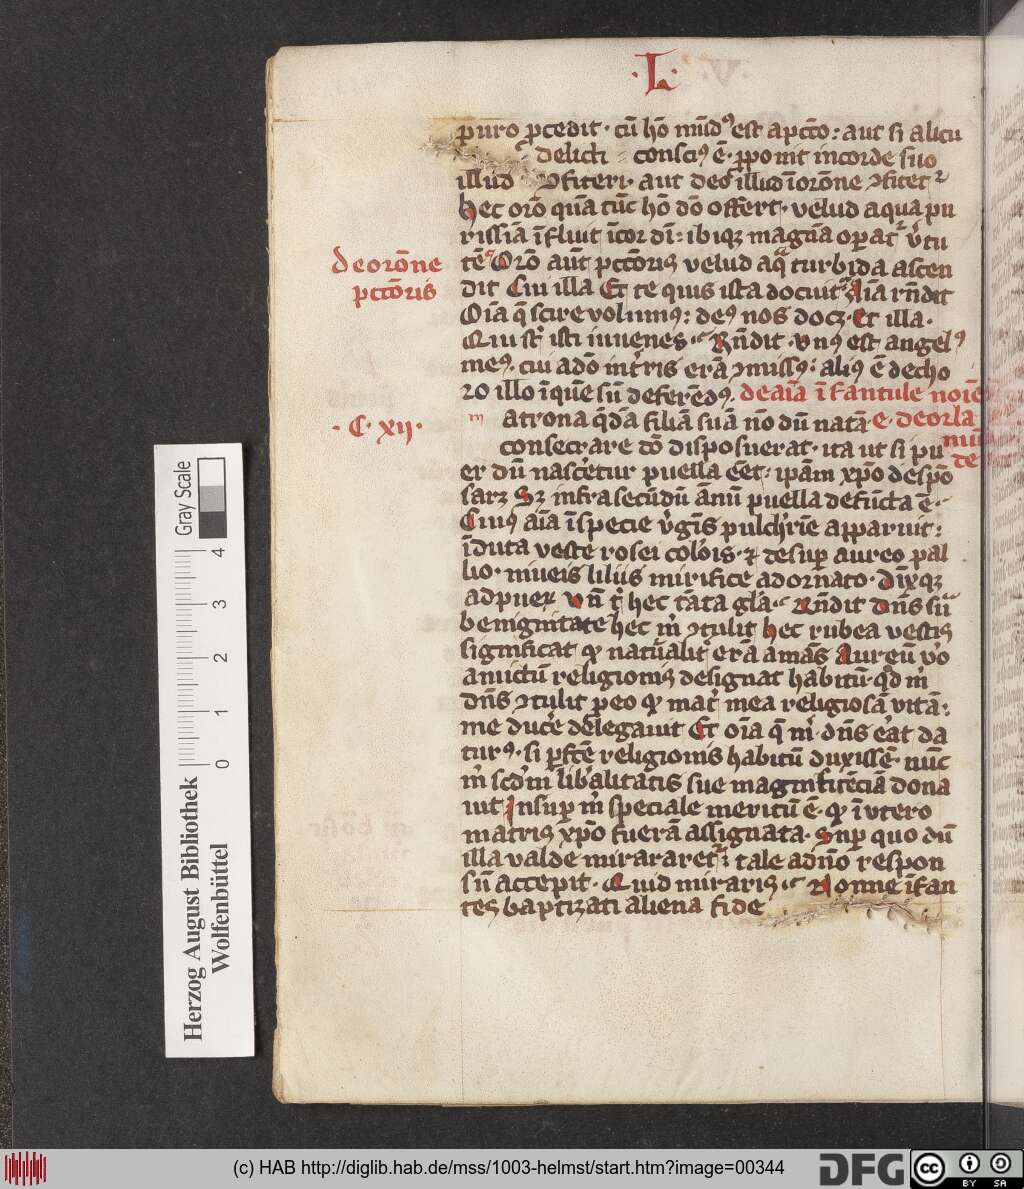 ·L·
puro ꝓcedit · cū hō mūdꝰ est a pctō : aut si alicuꝰ
delicti consciꝰ ē · ꝓponit in corde suo
illud ꝯfiteri · aut deo illud ī orōne ꝯfitet᷑
Hec orō quā tūc hō dō offert · velud aqua pu
rissiā īfluit ī cor dī : ibiqꝫ magnā oꝑat᷑ v̓tu
tē Orō aūt pctōris velud aq̄ turbida ascen
De orōne
pctōris
dit Cui illa Et te quis ista docuit Aīa rn̄dit
Oīa q̄ scire volumꝰ : deꝰ nos docꝫ · Et illa ·
Qui st̄ isti iuuenes Rn̄dit · vnꝰ est angelꝰ
meꝰ · cui a dōo mr̄is erā ꝯmissꝰ : aliꝰ ē de cho
ro illo ī quē sū deferēdꝰ · de aīa īfantule noīe
· C · xij ·
m atrona q̄dā filiā suā nōdū natā e · de orla
mū
consecrare dō disposuerat · ita ut si pu
te
er dū nascetur puella eēt · ipām xpō despō
sarꝫ Sꝫ infra secūdū ānū puella defūcta ē ·
Cuiꝰ aīa ī specie v̓gīs pulch̓rīe apparuit :
īduta veste rosei colo̓is · ⁊ desuꝑ aureo pal
lio · niueis liliis mirifice adornato · Dīxqꝫ
ad puer̄ vn̄ t̓ hec tāta glā Rn̄dit dn̄s sū
benignitate hec m̓ ꝯtulit hec rubea vestis
significat ꝙ nat̓alit᷑ erā amās Aureū v̓o
amictū religionis designat habitū · qd m̓
dn̄s ꝯtulit ꝑ eo ꝙ mat̓ mea religiosā vitā :
me duce̓ delegauit Et oīa q̄ m̓ dn̄s e̓at da
turꝰ · si ꝑfcē religionis habitū duxissē · nūc
m̓ scdm lib̓alitatis sue magnificēciā dona
uit Insuꝑ m̓ speciale meritū ē · ꝙ ī vtero
matris xpō fuerā assignata · Suꝑ quo dū
illa valde miraret᷑ : tale a dn̄o respon
sū accepit · Quid miraris Nonne īfan
tes baptizati aliena fide
Gray Scale
4
3
2
1
0
Herzog August Bibliothek
Wolfenbüttel
(c) HAB http://diglib.hab.de/mss/1003-helmst/start.htm?image=00344
DFG
cc
BY SA